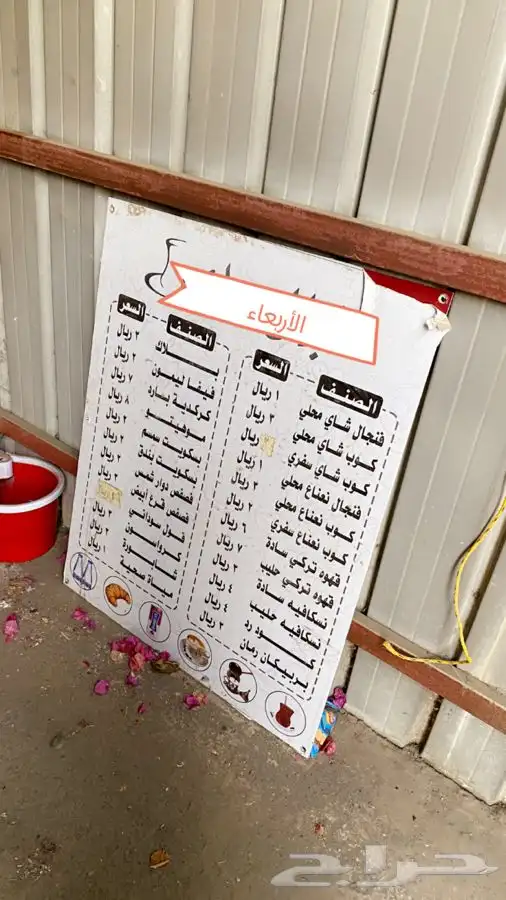 الأربعاء
الصنف السعر
فنجال شاي محلي ١ ريال
كوب شاي محلي ٢ ريال
كوب شاي سفري ريال
فنجال نعناع محلي ١ ريال
كوب نعناع محلي ٢ ريال
كوب نعناع سفري ٢ ريال
قهوه تركي سادة ٦ ريال
قهوه تركي حليب ٧ ريال
نسكافيه سادة ٣ ريال
نسكافيه حليب ٤ ريال
كود رد ٤ ريال
بربيكان رمان ٣ ريال
الصنف السعر
بلاك ٣ ريال
فيفا ليمون ٢ ريال
كركدية بارد ٧ ريال
موهيتو ٨ ريال
بسكويت سمسم ٢ ريال
بسكويت بندق ٢ ريال
فصفص دوار شمس ٢ ريال
فصفص قرع أبيض
فول سوداني ٢ ريال
كرواسون ٢ ريال
شابورة ٢ ريال
مياة صحية ١ ريال
حراج